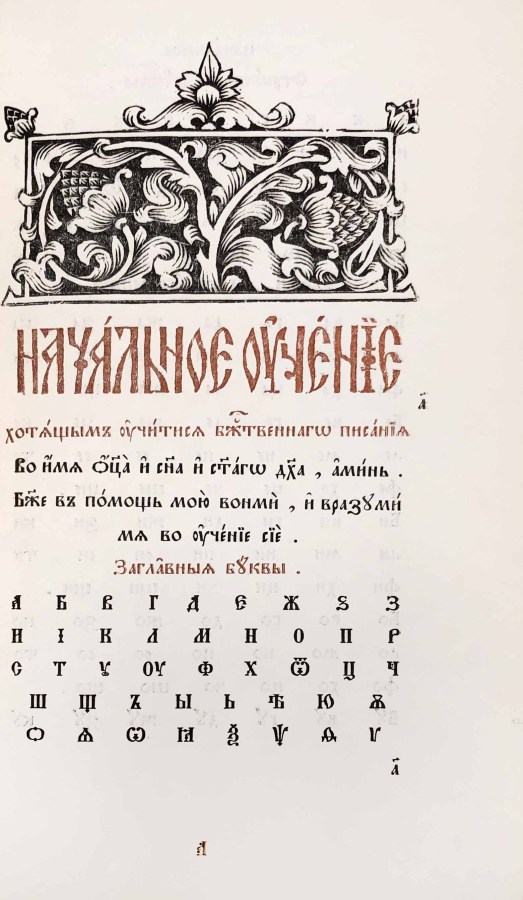 НАЧА́ЛЬНОЕ ОУ҆ЧЕ́НЇЕ
а҃
хотѧ́щымъ ᲂу҆чи́тисѧ бж҃е́ственнагѡ писа́нїѧ
Во и҆́мѧ ѻ҆ц҃а̀ и҆ сн҃а и҆ ст҃а́гѡ дх҃а , а҆ми́нь .
Бж҃е въ по́мощь мою̀ вонмѝ , и҆ вразꙋми́
мѧ во ᲂу҆че́нїе сїѐ .
Загла́вныѧ бꙋ́квы .
А Б В Г Д Є Ж Ѕ З
И І К Л М Н О П Р
С Т Ꙋ ОУ Ф Х Ѿ Ц Ч
Ш Щ Ъ Ы Ь Ѣ Ю Ѫ
Ѻ Ѧ Ѡ Ꙗ Ѯ Ѱ Ѳ Ѵ
а҃
А